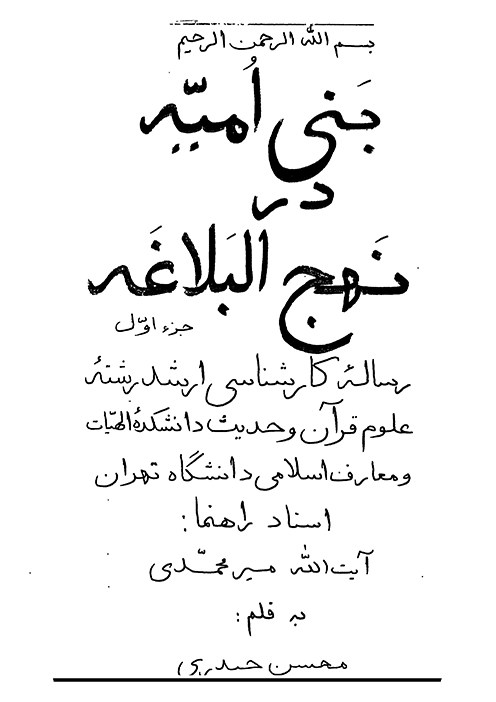 بسم الله الرحمن الرحیم
بَنی اُمیّه
در
نَهج البَلاغَه
جزء اوّل
رسالهٔ کارشناسی ارشد رشتهٔ
علوم قرآن و حدیث دانشکدهٔ الهیّات
و معارف اسلامی دانشگاه تهران
استاد راهنما:
آیت الله میر محمّدی
به قلم:
محسن حیدری